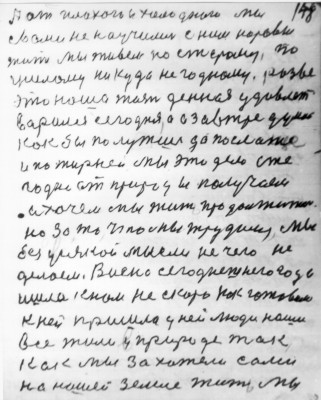 148
От плохого и холодного мы
с вами не научились с ним наровы
жить мы живем по старому, по
целому никуда не годному. разве
это наша жизнь денная удовлет
варился сегодня, а завтре думи
как бы получше да послаще
и по жирней мы это дело уже
годы от природы получаем
и хочем мы жить продолжить.
но за то что мы трудимся, мы
без цякой мысли не чего не
делаем. Висно сегоднешнего года
ишла к нам не скоро как готовом
к ней пришла у ней люди наши
все жили в природе так
как мы захотели сами
на нашей земле жить, мы